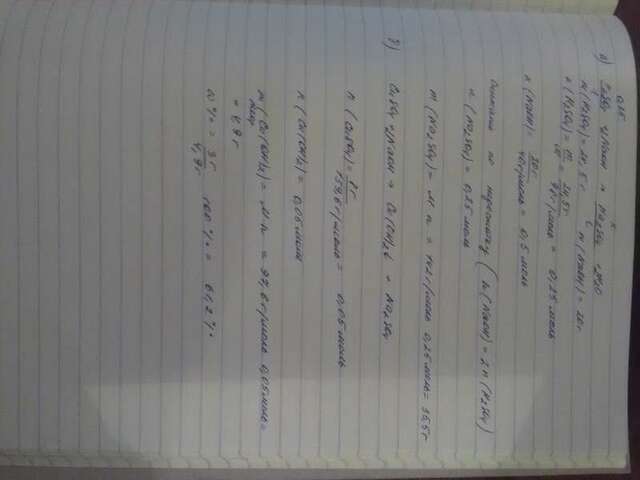 0,25
в) H₂SO₄ + 2NaOH → Na₂SO₄ + 2H₂O
m(H₂SO₄) = 24,5г m(NaOH) = 20г
n(H₂SO₄) = m/M = 24,5г/98г/моль = 0,25 моль
n(NaOH) = 20г/40г/моль = 0,5 моль
по (n(NaOH) = 2n(H₂SO₄)
n(Na₂SO₄) = 0,25 моль
m(Na₂SO₄) = M n = 142г/моль 0,25 моль = 35,5г
CuSO₄ + 2NaOH → Cu(OH)₂↓ + Na₂SO₄
n(CuSO₄) = 8г/159,6г/моль = 0,05 моль
n(Cu(OH)₂) = 0,05 моль
m(Cu(OH)₂) = M n = 97,6г/моль 0,05 моль =
= 4,9г
ω% = 3г/4,9г 100% = 61,2%